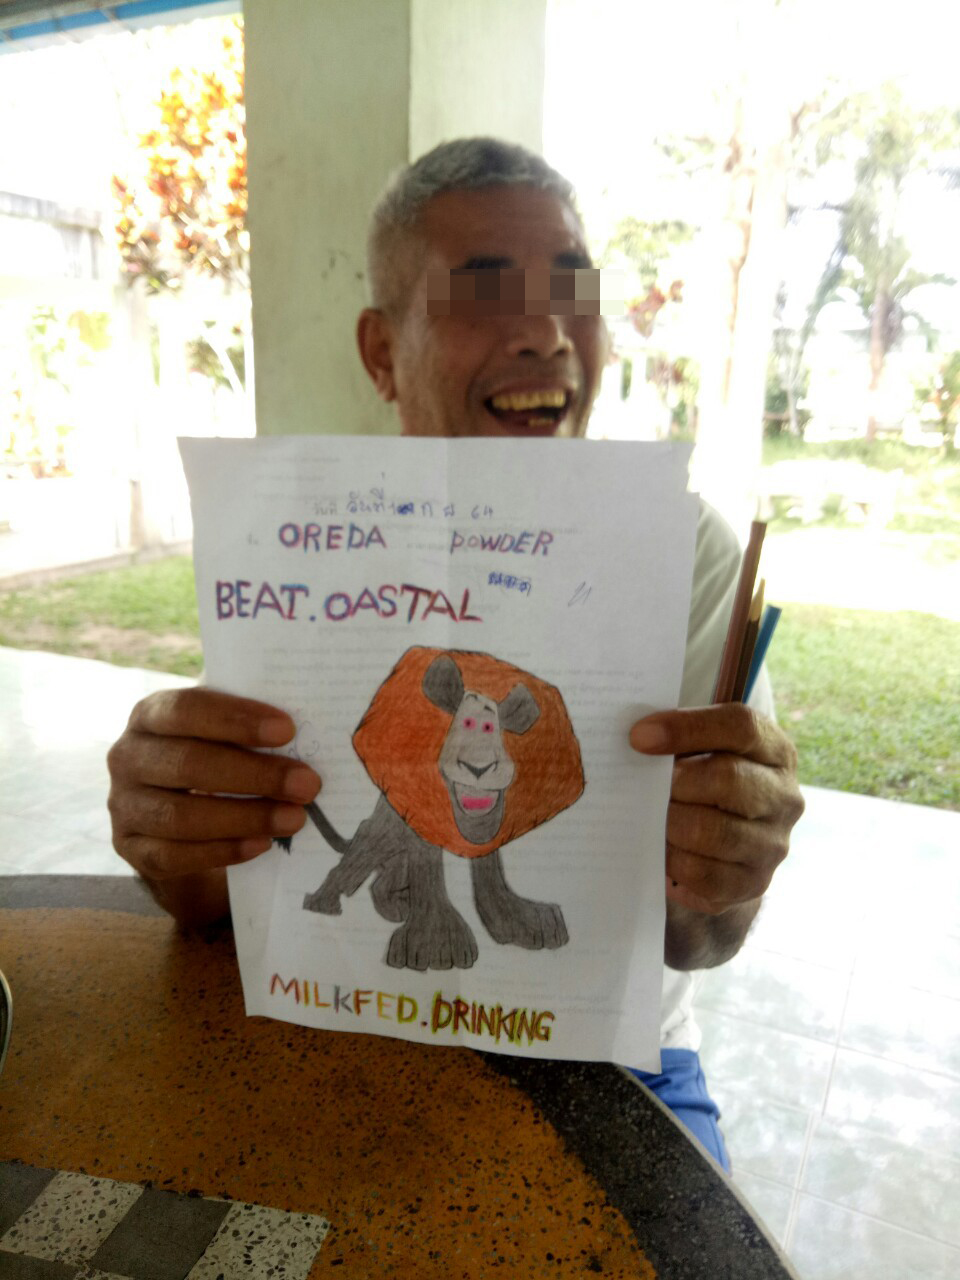 วันที่
OREDA POWDER
BEAT.OASTAL
MILKFED.DRINKING